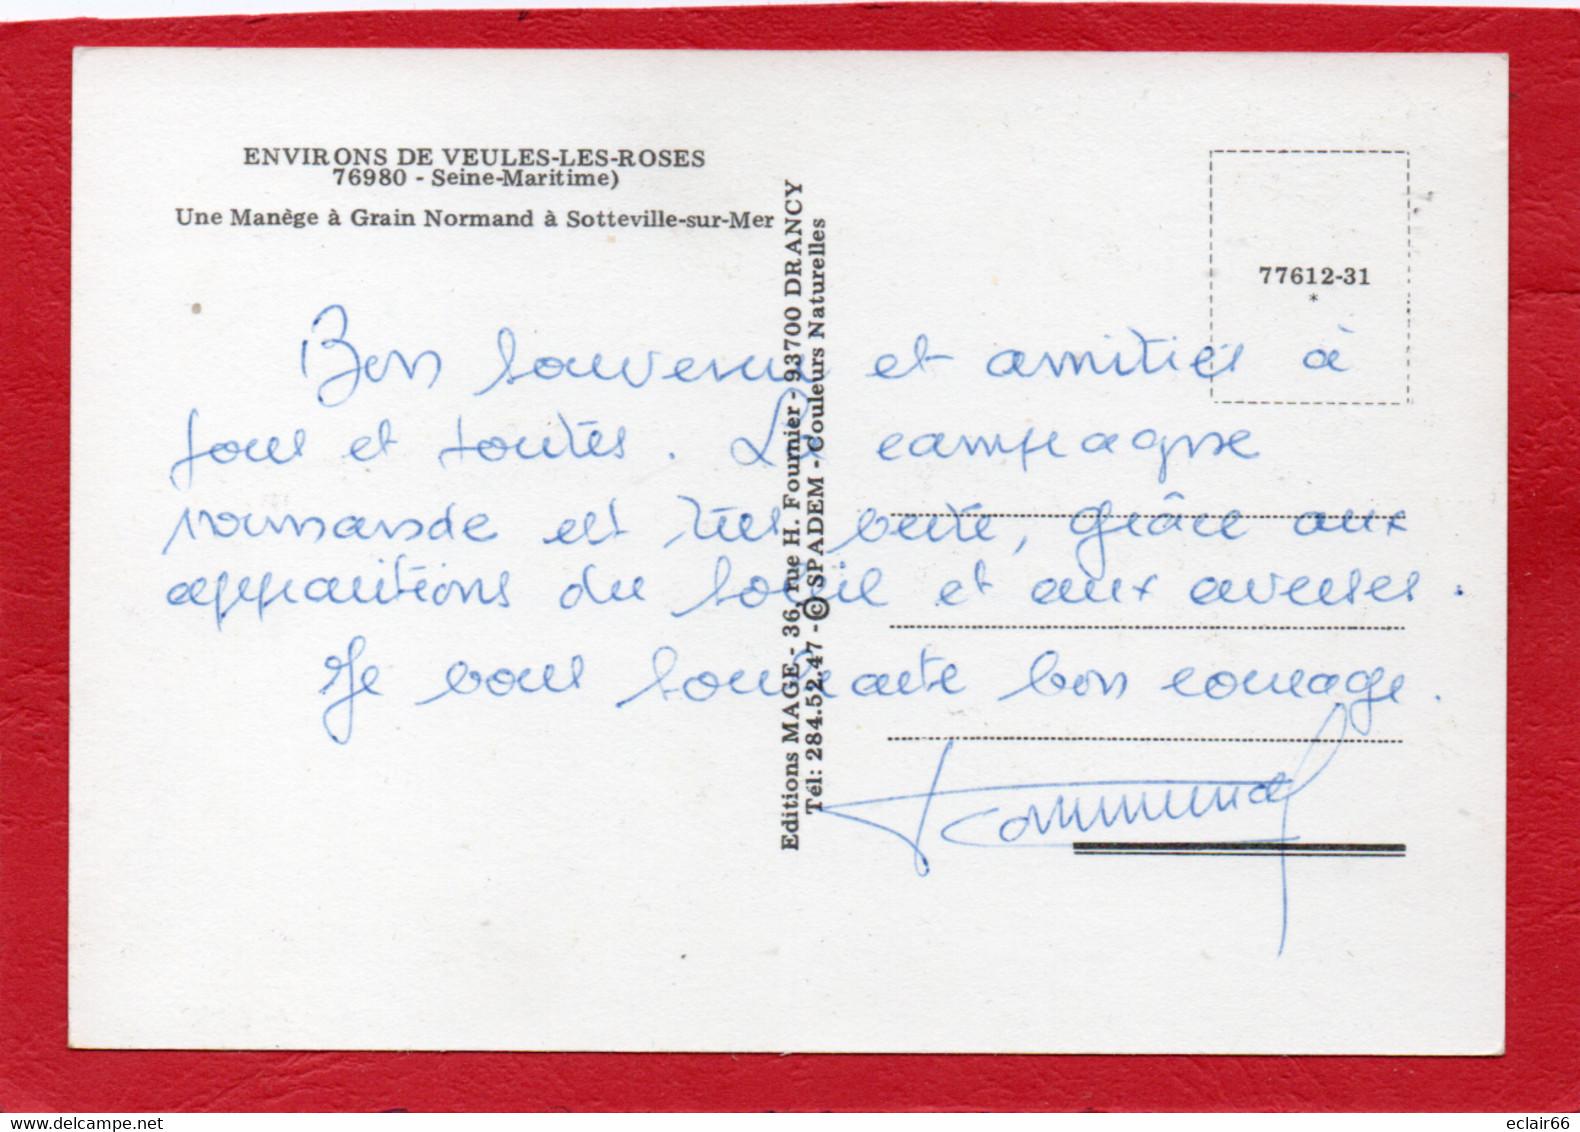 ENVIRONS DE VEULES-LES-ROSES
76980 - Seine-Maritime)
Une Manège à Grain Normand à Sotteville-sur-Mer
77612-31
*
Editions MAGE - 36, rue H. Fournier - 93700 DRANCY
Tél: 284.52.47 - © SPADEM - Couleurs Naturelles
Bon souvenir et amitiés à
tous et toutes. La campagne
normande est très verte, grâce aux
apparitions du soleil et aux averses.
Je vous souhaite bon courage.
eclair66